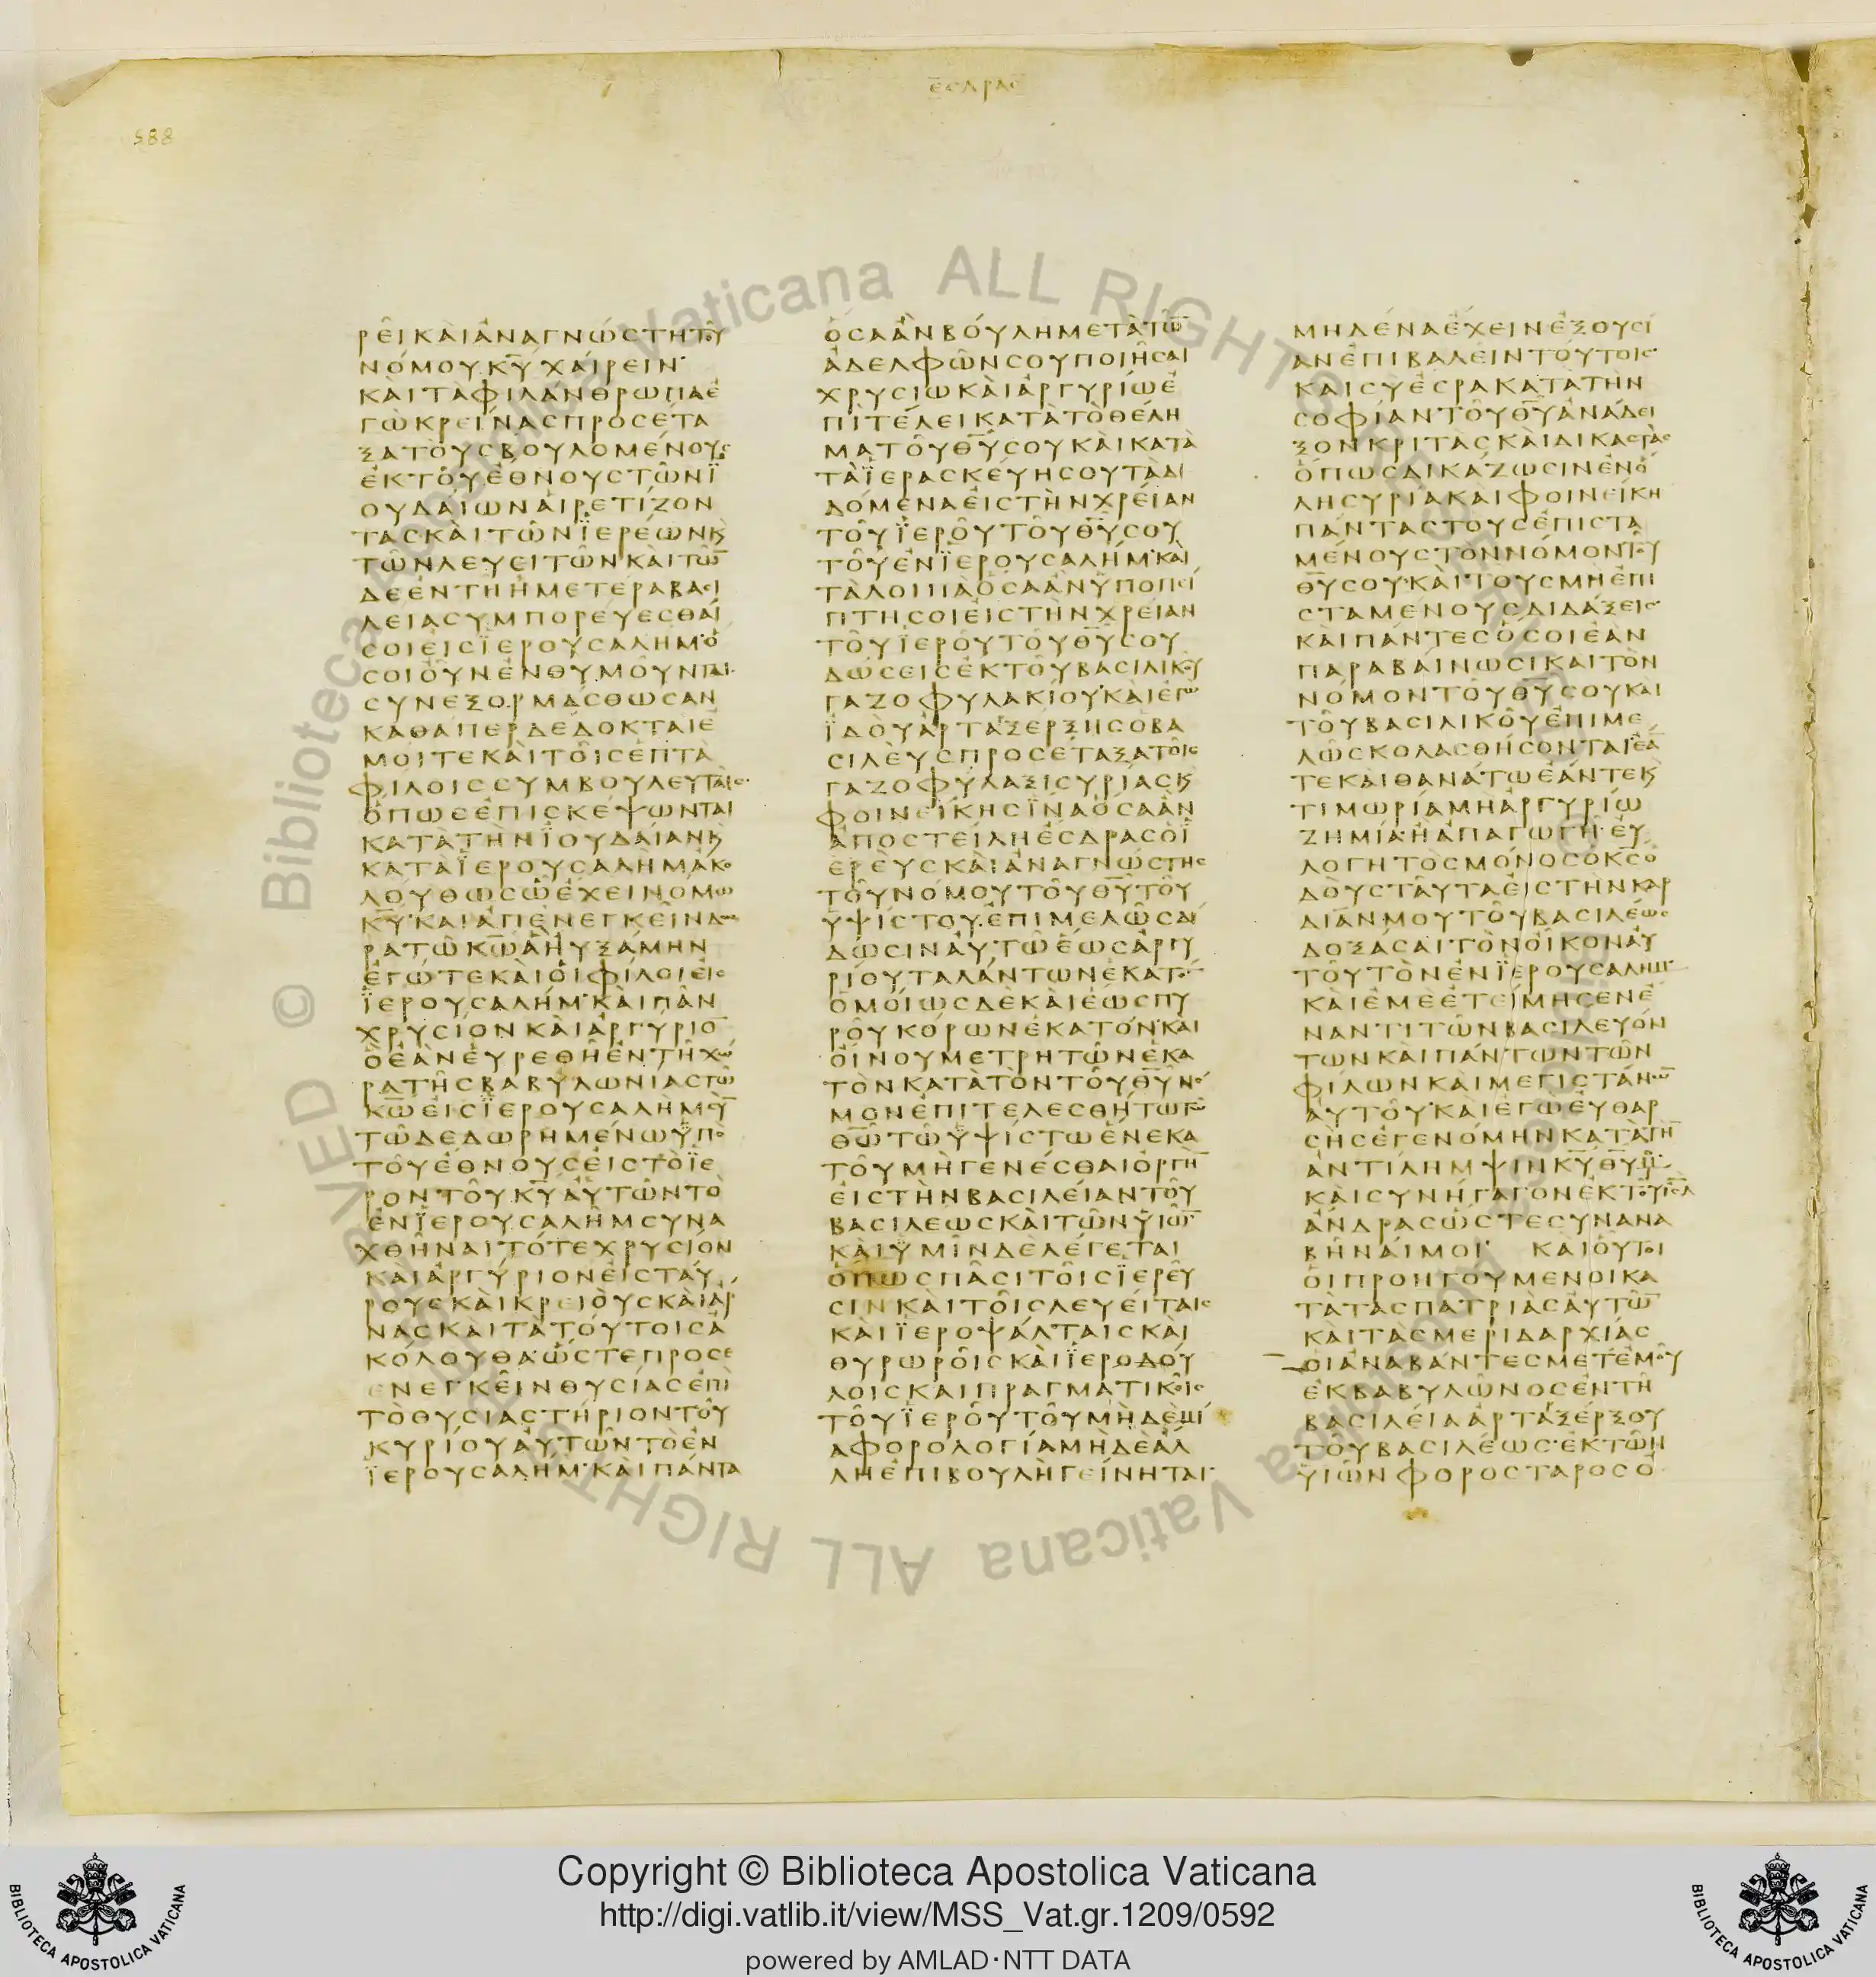 ε̅σδρας
588
ρε̂ικὰιἀναγνώστητου
νόμουκ̅υ̅χάιρειν·
κὰιτὰφιλάνθρωπαἐ
γὼκρείναςπροσέτα
ξατὸυςβουλομένους
ἐκτο̂υἔθνουςτω̂νϊ
ουδάιωναἱρετίζον
ταςκὰιτω̂νϊερέωνκ̀
τω̂νλευειτω̂νκὰιτω̅
δεἐντηἡμετέραβασι
λείασυμπορέυεσθαί
σοιἐιςϊερουσαλήμ·ὅ
σοιὀυνἐνθυμο̂υνται·
συνεξορμάσθωσαν
καθάπερδέδοκταιἐ
μόιτεκὰιτο̂ιςἑπτὰ
φίλοιςσυμβουλευτα̂ις·
ὅπωςἐπισκέψωνται
κατὰτὴνϊουδάιανκ̀
κατὰϊερουσαλὴμἀκο
λούθωςὡἔχεινομω
κ̅υ̅·κὰιἀπενεγκε̂ινδω
ρατω̂κ̅ω̅ἁηὐξάμην
ἐγώτεκὰιὁιφίλοιἐις
ϊερουσαλήμ·κὰιπα̂ν
χρυσίονκὰιἀργύριο̅
ὃἐὰνἐυρεθη̂ἐντη̂χώ
ρατη̂ςβαβυλωνίαςτω̂
κ̅ω̅ἐιςϊερουσαλὴμσὺ̅
τω̂δεδωρημένωϋπὸ
το̂υἔθνουςἐιςτὸϊε
ρὸντο̂υκ̅υ̅ἀυτω̂ντὸ
ἐνϊερουσαλὴμσυνα
χθη̂ναιτότεχρυσίον
κὰιἀργύριονἐιςτάυ
ρουςκὰικρειὸυςκὰιἄρ
ναςκὰιτὰτόυτοιςἀ
κόλουθα·ὥστεπροσε
ενεγκε̂ινθυσίαςἐπὶ
τὸθυσιαστήριοντο̂υ
κυρίουἀυτω̂ντὸἐν
ϊερουσαλήμ·κὰιπάντα
ὅσαἂνβόυλημετὰτω̅
ἀδελφω̂νσουποιη̂σαι
χρυσίωκὰιἀργυρίωἐ
πιτέλεικατὰτὸθέλη
ματο̂υθ̅υ̅σουκὰικατὰ
τὰϊερασκέυησουτὰδι
δόμεναἐιςτὴνχρέιαν
το̂υϊερο̂υτο̂υθ̅υ̅σου
το̂υἐνϊερουσαλήμ·κὰι
τὰλοιπὰὅσαἂνϋποπεί
πτησοιἐιςτὴνχρείαν
το̂υϊερο̂υτο̂υθ̅υ̅σου
δώσειςἐκτο̂υβασιλικο̂υ
γαζοφυλακίου·κὰιἐγὼ
ϊδὸυἀρταξερξηςὁβα
σιλὲυςπροσέταξατο̂ις
γαζοφύλαξισυρίαςκ̀
φοινείκηςϊναὅσαἂν
ἀποστείληἐσδραςὁϊ
ερέυςκὰιἀναγνώστης
το̂υνόμουτο̂υθ̅υ̅το̂υ
ϋψίστου·ἐπιμελω̂ςδι
δωσινἀυτω̂ἕωςἀργυ
ρίουταλάντωνἑκατὸ̅
ὁμόιωςδὲκὰιἕωςπυ
ρο̂υκόρωνἑκατόν·κὰι
ὀίνουμετρητω̂νἑκα
τὸνκατὰτὸντο̂υθ̅υ̅νό
μονἐπιτελεσθήτωτω
θ̅ω̅τω̂ϋψίστωἕνεκα
το̂υμὴγενέσθαιὀργὴ̅
ἐιςτὴνβασιλείαντο̂υ
βασιλέωςκὰιτω̂νϋιω̅
κὰιϋμι̂νδὲλέγεται
ὅπωςπα̂σιτο̂ιςϊερε̂υ
σινκὰιτο̂ιςλευείταις
κὰιϊεροψάλταιςκὰι
θυρωρο̂ιςκὰιϊεροδόυ
λοιςκαιπραγματικο̂ις
το̂υϊερο̂υτο̂υμηδεμί
αφορολογίαμηδὲἄλ
ληἐπιβουλὴγείνηται·
μηδέναἔχεινἐξουσί
ανἐπιβαλε̂ιντόυτοις·
καισυἐσρακατὰτὴν
σοφίαντο̂υθ̅υ̅ἀνάδει
ξονκριτὰςκὰιδικαστὰς
ὅπωςδικάζωσινἐνὅ
λησυρίακαιφοινείκη
πάνταςτουςἐπιστα
μένουςτὸννόμοντο̂υ
θ̅υ̅σου·κὰιτουςμὴἐπι
σταμενουςδιδάξεις·
κὰιπάντεςὅσοιἐὰν
παραβάινωσικαιτὸν
νόμοντο̂υθ̅υ̅σουκαι
το̂υβασιλικο̂υἐπιμε
λω̂ςκολασθήσονταιἐά
τεκὰιθανάτωἐάντεκ̀
τιμωρίαμὴἀργυρίω
ζημία·ἢἀπαγωγη̂·ἐυ
λογητὸςμόνοςὁκ̅ς̅ὁ
δὸυςτα̂υταἐιςτὴνκαρ
δίανμουτο̂υβασιλέως·
δοξάσαιτὸνο̂ικοναὐ
το̂υτὸνἐνϊερουσαλημ·
κὰιἐμὲἐτείμησενἔ
ναντιτω̂νβασιλευόν
τωνκὰιπάντωντω̂ν
φίλωνκὰιμεγιστάνω̅
ἀυτο̂υ·κὰιἐγὼἐυθαρ
σὴςἐγενόμηνκατὰτὴ̅
ἀντίλημψινκ̅υ̅θ̅υ̅μ
κὰισυνήγαγονἐκτο̂υι̅η̅λ
ἄνδραςὥστεσυνανα
βη̂νάιμοι· κὰιὁυτοι
ὁιπροηγουμενοικα
τὰτὰςπατριὰςἀυτω̅
κὰιτὰςμεριδαρχίας
ὁιἀναβάντεςμετἐμο̂υ
ἐκβαβυλω̂νοςἐντη̂
βασιλείαἀρταξέρξου
το̂υβασιλέως·ἐκτω̂ν
υἱω̂νφοροςταροσο
Copyright © Biblioteca Apostolica Vaticana
http://digi.vatlib.it/view/MSS_Vat.gr.1209/0592
powered by AMLAD·NTT DATA
BIBLIOTECA APOSTOLICA VATICANA
BIBLIOTECA APOSTOLICA VATICANA